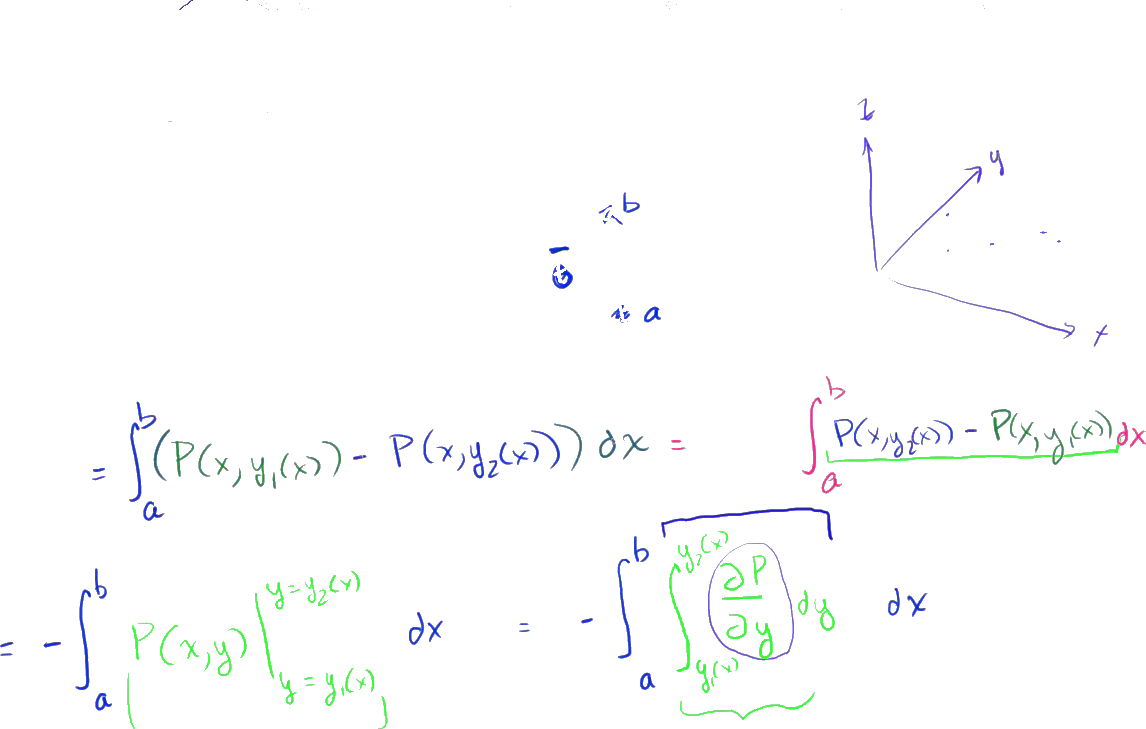 z
y
b
a
x
= ∫_a^b (P(x,y₁(x)) - P(x,y₂(x))) dx = ∫_a^b P(x,y₂(x)) - P(x,y₁(x)) dx
= - ∫_a^b P(x,y) |_{y=y₁(x)}^{y=y₂(x)} dx = - ∫_a^b ∫_{y₁(x)}^{y₂(x)} ∂P/∂y dy dx